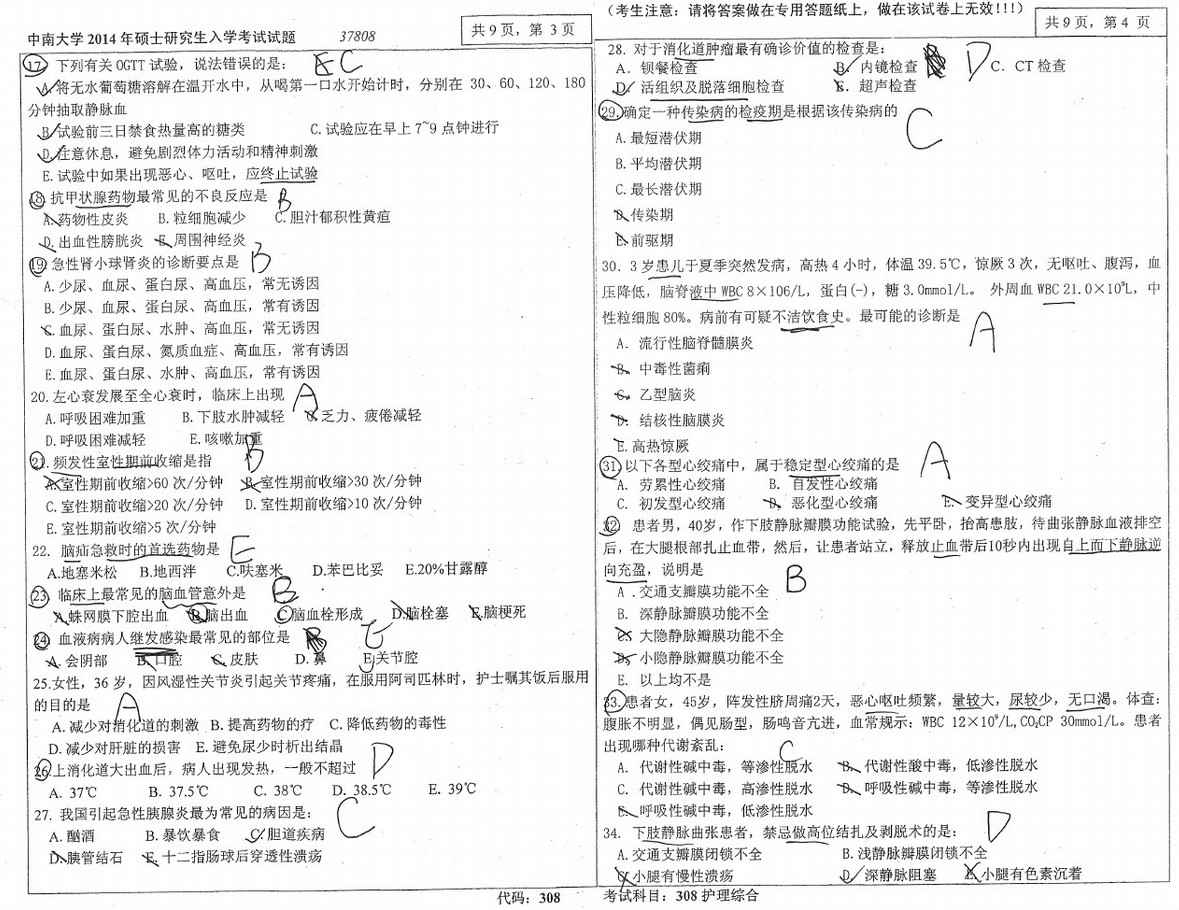 中南大学 2014 年硕士研究生入学考试试题 37808 共 9 页，第 3 页
17. 下列有关 OGTT 试验，说法错误的是： C
A.将无水葡萄糖溶解在温开水中，从喝第一口水开始计时，分别在 30、60、120、180
分钟抽取静脉血
B.试验前三日禁食热量高的糖类 C.试验应在早上 7~9 点钟进行
D.注意休息，避免剧烈体力活动和精神刺激
E.试验中如果出现恶心、呕吐，应终止试验
18. 抗甲状腺药物最常见的不良反应是 B
A.药物性皮炎 B.粒细胞减少 C.胆汁郁积性黄疸
D.出血性膀胱炎 E.周围神经炎
19. 急性肾小球肾炎的诊断要点是 B
A.少尿、血尿、蛋白尿、高血压，常无诱因
B.少尿、血尿、蛋白尿、高血压，常有诱因
C.血尿、蛋白尿、水肿、高血压，常无诱因
D.血尿、蛋白尿、氮质血症、高血压，常有诱因
E.血尿、蛋白尿、水肿、高血压，常有诱因
20. 左心衰发展至全心衰时，临床上出现 A
A.呼吸困难加重 B.下肢水肿减轻 C.乏力、疲倦减轻
D.呼吸困难减轻 E.咳嗽加重
21. 频发性室性期前收缩是指 B
A.室性期前收缩>60 次/分钟 B.室性期前收缩>30 次/分钟
C.室性期前收缩>20 次/分钟 D.室性期前收缩>10 次/分钟
E.室性期前收缩>5 次/分钟
22. 脑疝急救时的首选药物是 E
A.地塞米松 B.地西泮 C.呋塞米 D.苯巴比妥 E.20%甘露醇
23. 临床上最常见的脑血管意外是 B
A.蛛网膜下腔出血 B.脑出血 C.脑血栓形成 D.脑栓塞 E.脑梗死
24. 血液病病人继发感染最常见的部位是 E
A.会阴部 B.口腔 C.皮肤 D.鼻 E.关节腔
25.女性，36 岁，因风湿性关节炎引起关节疼痛，在服用阿司匹林时，护士嘱其饭后服用
的目的是 A
A.减少对消化道的刺激 B.提高药物的疗 C.降低药物的毒性
D.减少对肝脏的损害 E.避免尿少时析出结晶
26.上消化道大出血后，病人出现发热，一般不超过 D
A. 37℃ B. 37.5℃ C. 38℃ D. 38.5℃ E. 39℃
27. 我国引起急性胰腺炎最为常见的病因是： C
A.酗酒 B.暴饮暴食 C.胆道疾病
D.胰管结石 E.十二指肠球后穿透性溃疡
代码：308
（考生注意：请将答案做在专用答题纸上，做在该试卷上无效!!!）
共 9 页，第 4 页
28. 对于消化道肿瘤最有确诊价值的检查是： D
A. 钡餐检查 B. 内镜检查 C. CT 检查
D. 活组织及脱落细胞检查 E. 超声检查
29. 确定一种传染病的检疫期是根据该传染病的 C
A.最短潜伏期
B.平均潜伏期
C.最长潜伏期
D.传染期
E.前驱期
30. 3 岁患儿于夏季突然发病，高热 4 小时，体温 39.5℃，惊厥 3 次，无呕吐、腹泻，血
压降低，脑脊液中 WBC 8×106/L，蛋白(-)，糖 3.0mmol/L。 外周血 WBC 21.0×10⁹L，中
性粒细胞 80%。病前有可疑不洁饮食史。最可能的诊断是 A
A. 流行性脑脊髓膜炎
B. 中毒性菌痢
C. 乙型脑炎
D. 结核性脑膜炎
E.高热惊厥
31. 以下各型心绞痛中，属于稳定型心绞痛的是 A
A. 劳累性心绞痛 B. 自发性心绞痛
C. 初发型心绞痛 D. 恶化型心绞痛 E. 变异型心绞痛
32. 患者男，40岁，作下肢静脉瓣膜功能试验，先平卧，抬高患肢，待曲张静脉血液排空
后，在大腿根部扎止血带，然后，让患者站立，释放止血带后10秒内出现自上而下静脉逆
向充盈，说明是 B
A .交通支瓣膜功能不全
B. 深静脉瓣膜功能不全
C. 大隐静脉瓣膜功能不全
D. 小隐静脉瓣膜功能不全
E. 以上均不是
33. 患者女，45岁，阵发性脐周痛2天，恶心呕吐频繁，量较大，尿较少，无口渴。体查：
腹胀不明显，偶见肠型，肠鸣音亢进，血常规示：WBC 12×10⁹/L,CO₂CP 30mmol/L。患者
出现哪种代谢紊乱： C
A. 代谢性碱中毒，等渗性脱水 B. 代谢性酸中毒，低渗性脱水
C. 代谢性碱中毒，高渗性脱水 D. 呼吸性碱中毒，等渗性脱水
E. 呼吸性碱中毒，低渗性脱水
34. 下肢静脉曲张患者，禁忌做高位结扎及剥脱术的是： D
A.交通支瓣膜闭锁不全 B.浅静脉瓣膜闭锁不全
C.小腿有慢性溃疡 D.深静脉阻塞 E.小腿有色素沉着
考试科目：308 护理综合